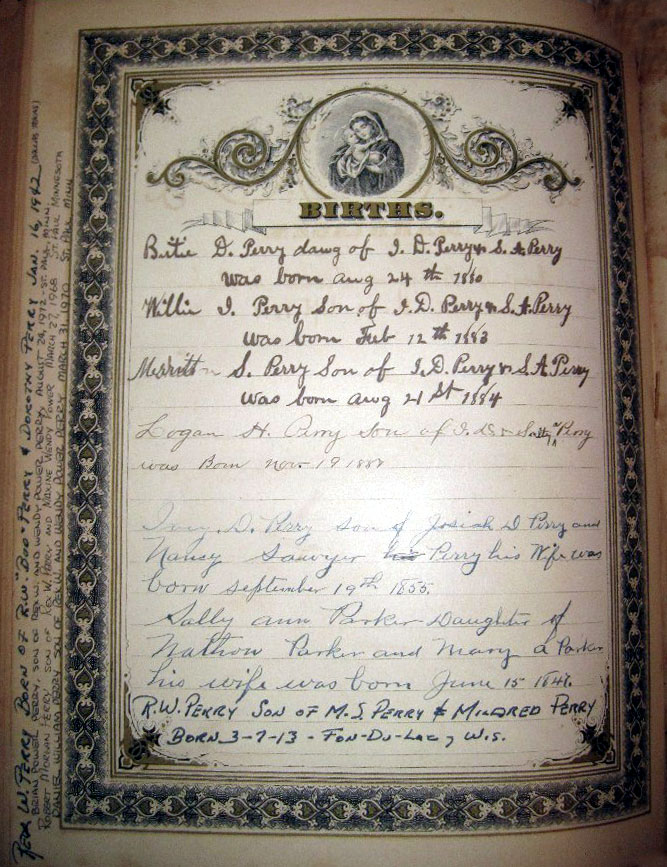 BIRTHS.
Birtie D. Perry dawg of I. D. Perry & S. A. Perry
was born aug 24th 1880
Willie I. Perry Son of I. D. Perry & S. A. Perry
was born Feb 12th 1883
Merritt S. Perry Son of I. D. Perry & S. A. Perry
was born aug 21st 1884
Logan H. Perry Son of I. D. & Sally A Perry
was Born Nov. 19
D. Perry son of Josiah D Perry and
Nancy Sawyer his Perry his Wife was
born September 19th 1855.
Sally ann Parker Daughter of
Nathan Parker and Mary a Parker
his wife was born June 15 1846.
R.W. PERRY SON OF M.S. PERRY & MILDRED PERRY
BORN 3-7-13 - FON-DU-LAC, W.S.
REX W. PERRY BORN OF R.W. "BUD" PERRY & DOROTHY PERRY JAN. 16, 1942 (DALLAS TEXAS)
BRIAN POWER PERRY, SON OF REX W. AND WENDY POWER PERRY, AUGUST 24, 1972 - ST. PAUL MINN.
ROBERT MORGAN PERRY SON OF REX W. PERRY AND MAXINE WENDY POWER MARCH 27, 1968 ST. PAUL MINNESOTA
DANIEL WILLIAM PERRY SON OF REX W. AND WENDY POWER PERRY MARCH 31, 1970 ST. PAUL MINN